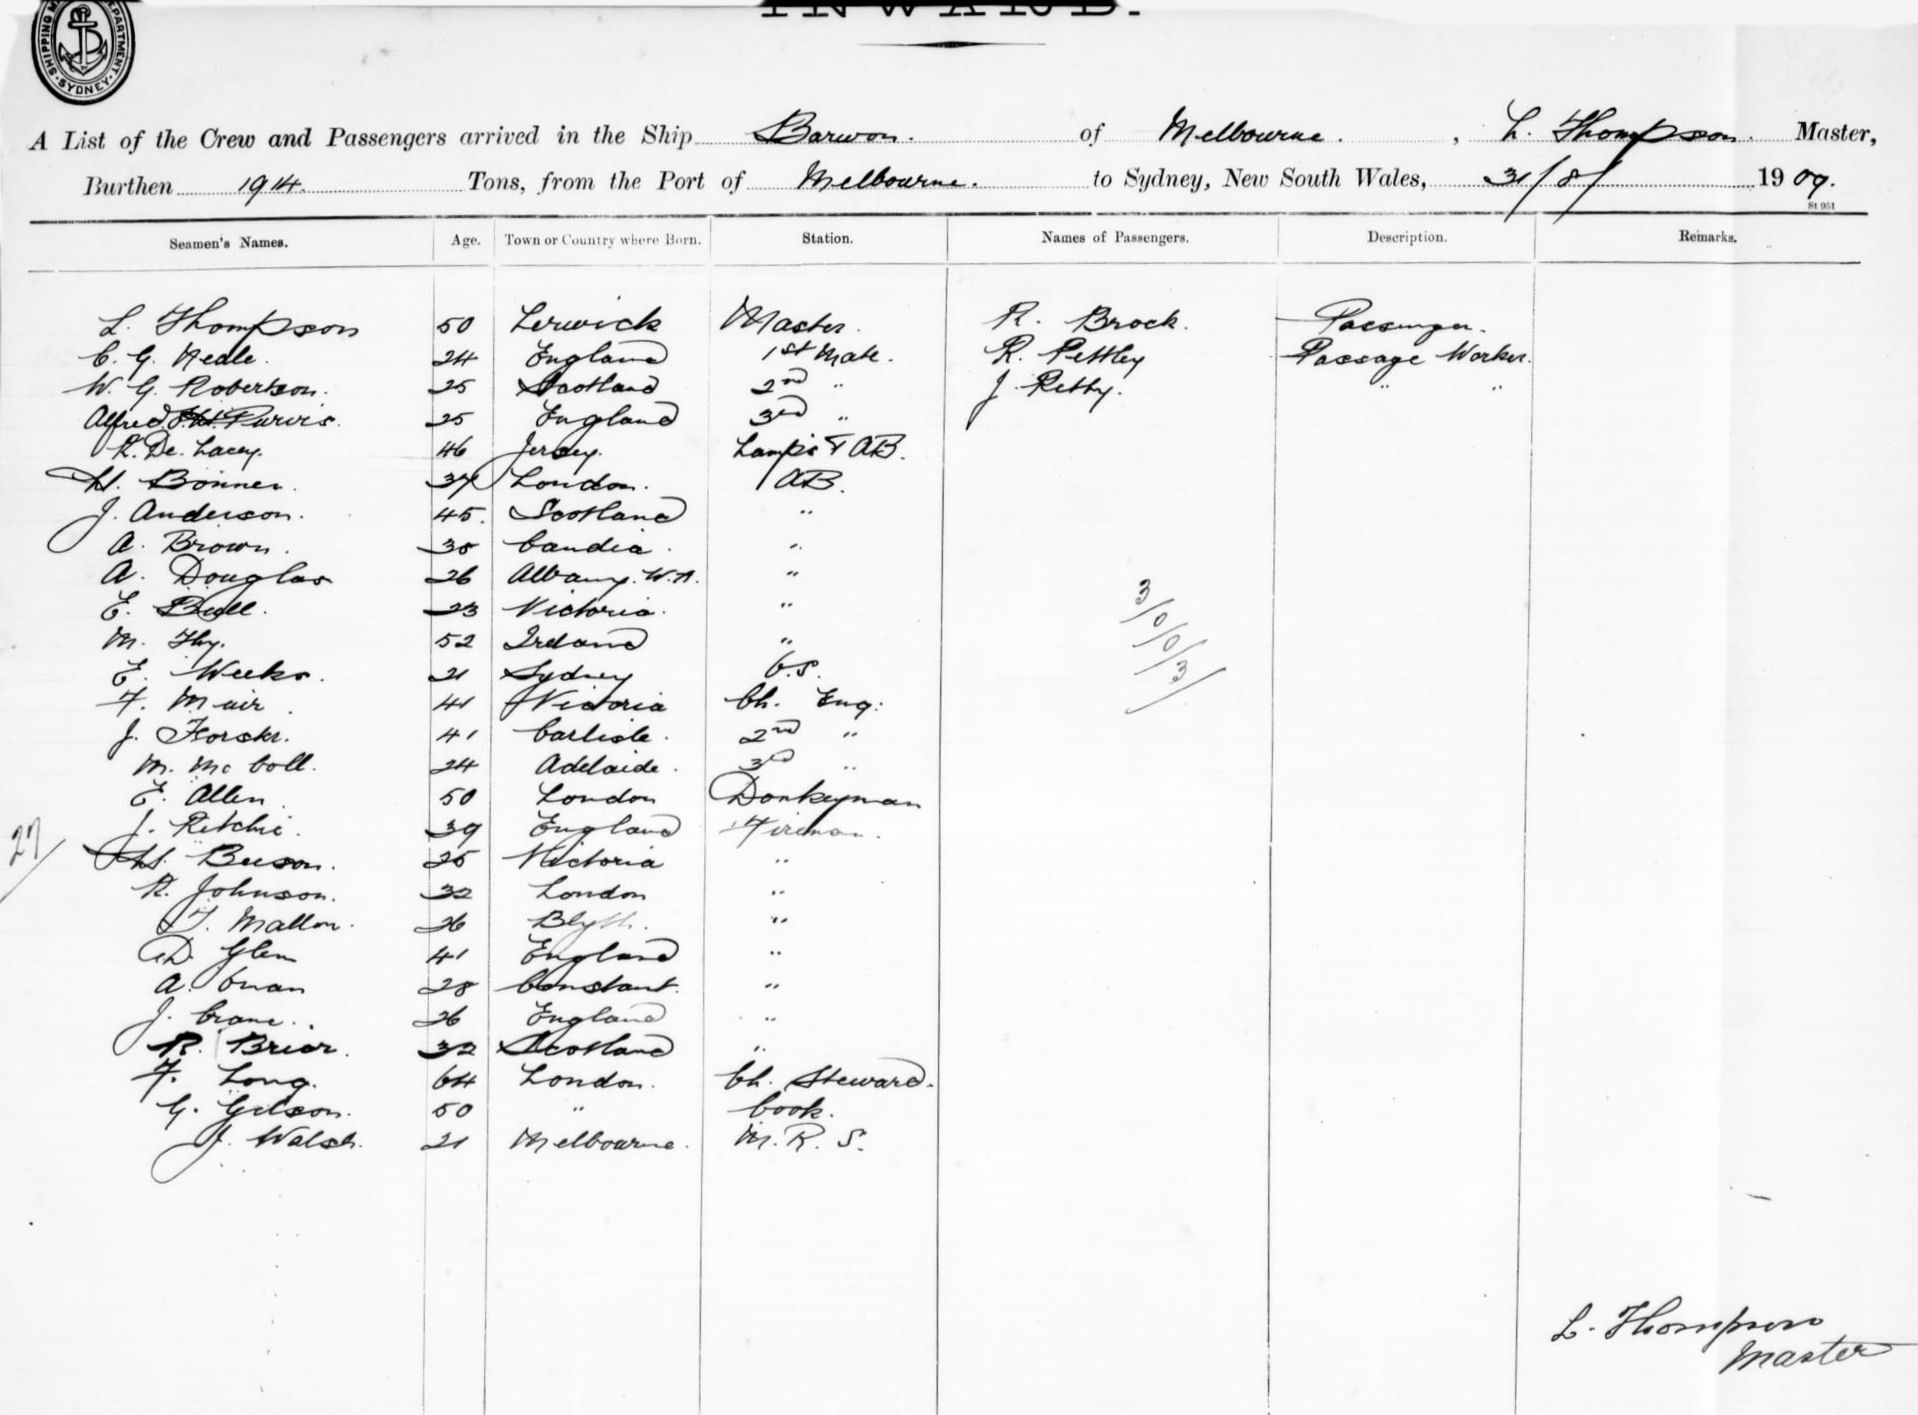 INWARD.
SHIPPING DEPARTMENT. SYDNEY
A List of the Crew and Passengers arrived in the Ship Barwon. of Melbourne. , L. Thompson. Master,
Burthen 1914. Tons, from the Port of Melbourne. to Sydney, New South Wales, 31/8/ 1909.
St.951
Seamen's Names. Age. Town or Country where Born. Station. Names of Passengers. Description. Remarks.
L. Thompson 50 Lerwick Master. R. Brock. Passenger.
C. G. Neale. 24 England 1st Mate. R. Pettley Passage Worker.
W. G. Robertson. 25 Scotland 2nd " J. Retby. " "
Alfred Purvis. 25 England 3rd "
R. De. Lacey. 46 Jersey. Lamps & AB.
H. Bonner. 37 London. AB.
J. Anderson. 45. Scotland "
A. Brown. Candia. "
A. Douglas 26 Albany. W.A. "
E. Bull. 23 Victoria. "
M. 52 Ireland "
E. Weeks. 21 Sydney O.S.
F. Muir. 41 Victoria Ch. Eng:
J. Forster. 41 Carlisle. 2nd "
M. Mc Coll. 24 Adelaide. 3rd "
E. Allen. 50 London Donkeyman
J. Ritchie. 39 England Fireman.
H. Beeson. 25 Victoria "
R. Johnson. 32 London "
T. Mallon. 26 Blyth. "
D. Glen 41 England "
A. 28 Constant. "
J. Crane. 26 England "
R. Briar. 32 Scotland "
F. Long. 64 London. Ch. Steward.
G. Gilson. 50 " Cook.
J. Walsh. 21 Melbourne. M. R. S.
3/0/0/3/
27/
L. Thompson
Master